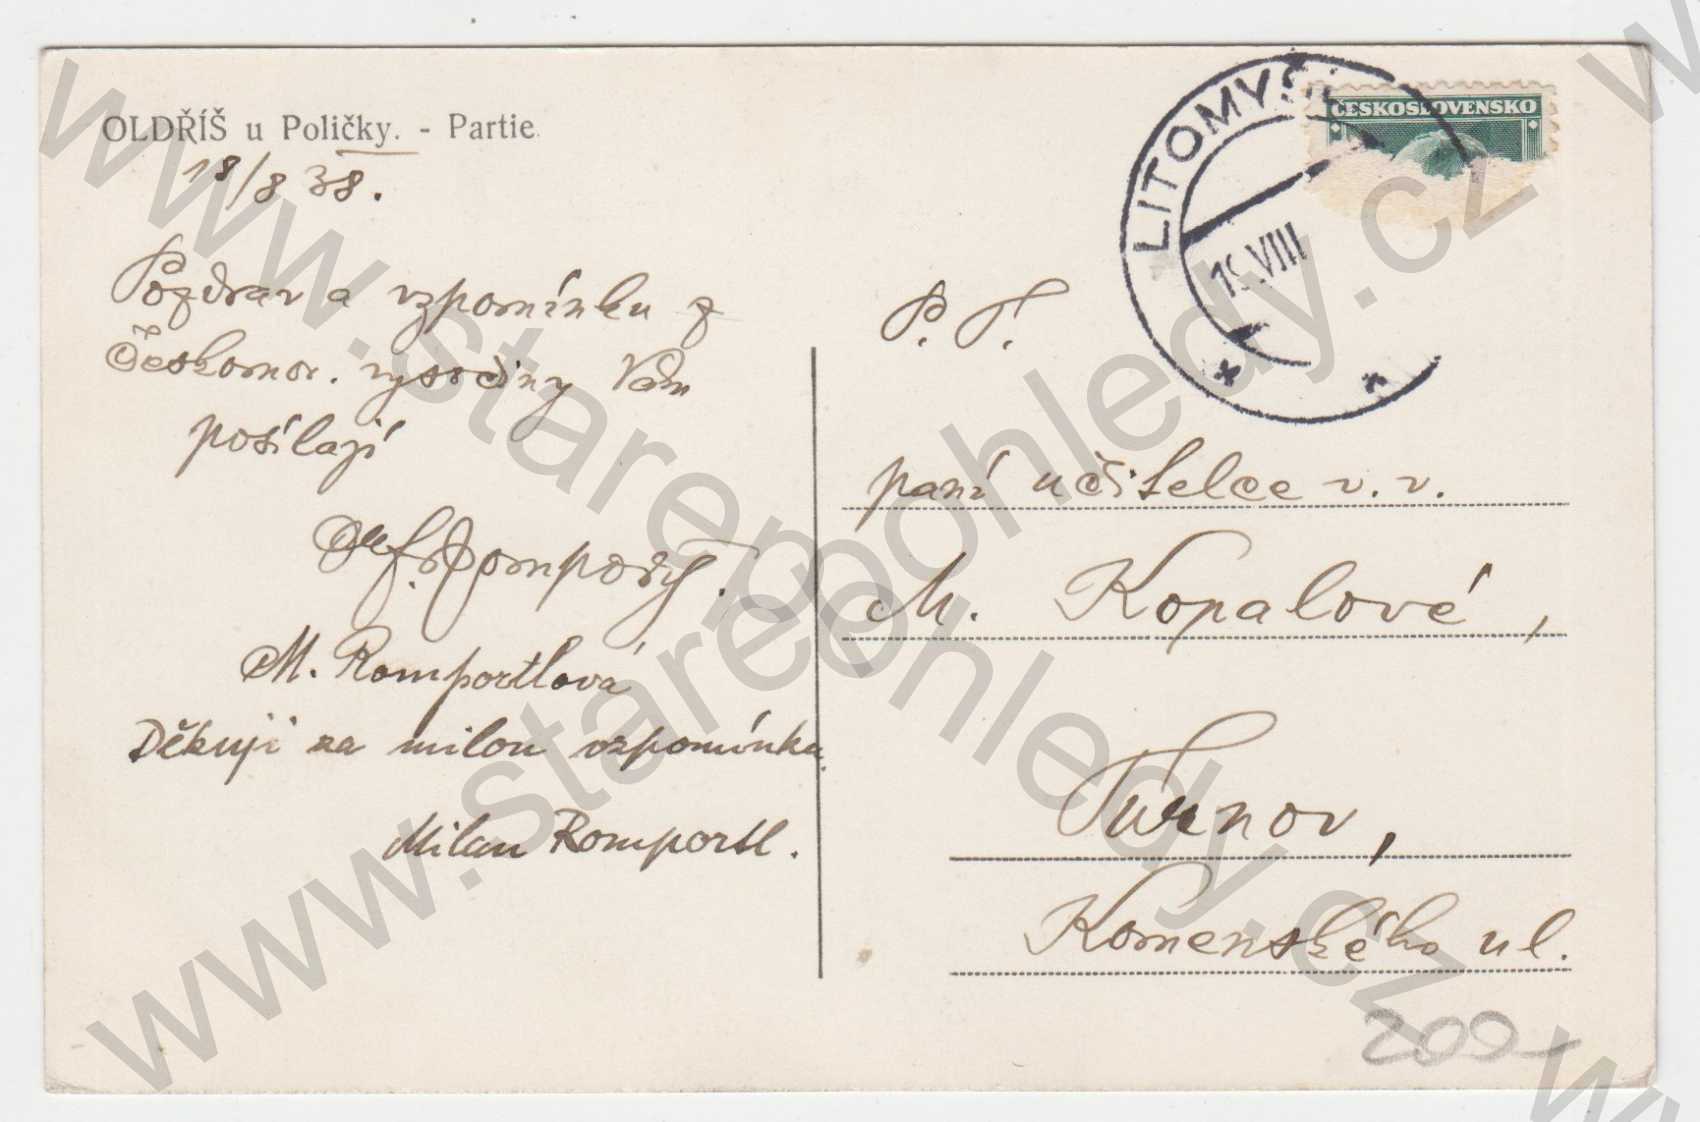 OLDŘÍŠ u Poličky. - Partie
18/8 38.
Pozdrav a vzpomínku z
Českomor. vysočiny Vám
posílají
M. Romportlová
Děkuji za milou vzpomínku.
Milan Romportl.
LITOMYŠL
19.VIII
ČESKOSLOVENSKO
P. T.
paní učitelce v. v.
M. Kopalové,
Turnov,
Komenského ul.
200-
www.starepohledy.cz
www.starepohledy.cz